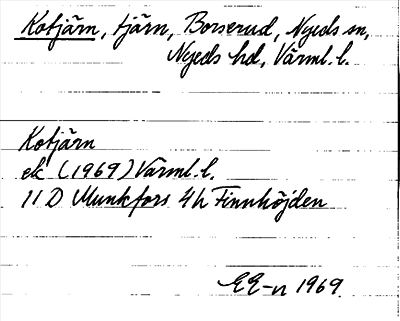 Kotjärn, tjärn, Borserud, Nyeds sn,
Nyeds hd, Värml. l.
Kotjärn
ek (1969) Värml. l.
11 D Munkfors 4h Finnhöjden
EE-n 1969.